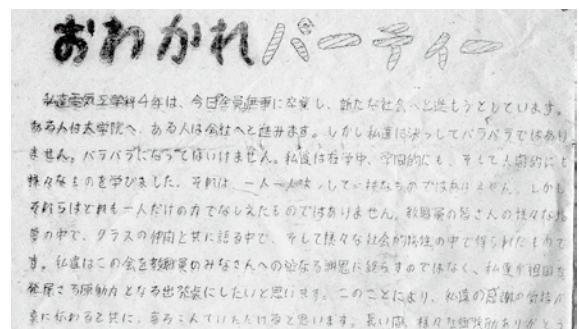 おわかれパーティー
私達電気工学科4年は、今日全員無事に卒業し、新たな社会へと進もうとしています。
ある人は大学院へ、ある人は会社へと進みます。しかし私達は決っしてバラバラではあり
ません。バラバラになってはいけません。私達は在学中、学問的にも、そして人間的にも
様々なものを学びました。それは、一人一人 して 様なものではありません。しかし
それらはどれも一人だけの力でなしえたものではありません。教職員の皆さんの様々な
の中で、クラスの仲間と共に語る中で、そして様々な社会的 の中で得られたもので
す。私達はこの会を教職員のみなさんへの単なる謝恩に終らすのではなく、私達が
発展さる原動力となる出発点にしたいと思います。このことにより、私達の感謝の気持が
真に伝わると共に、喜こんでいただけると思います。長い間、様々な御援助ありがとう